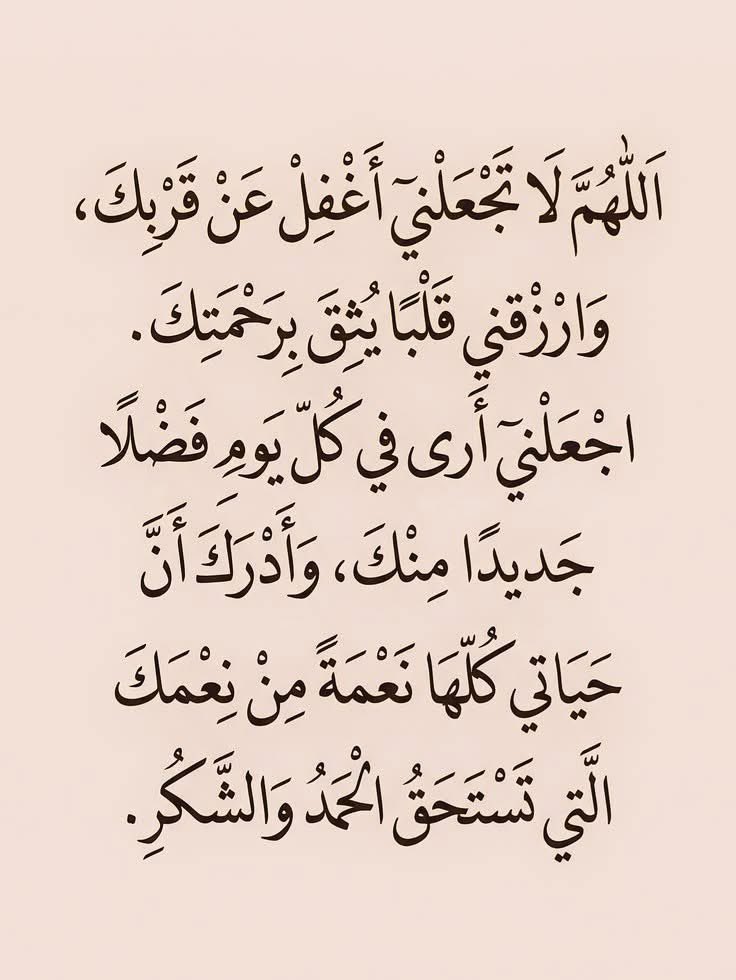 اَللّٰهُمَّ لَا تَجْعَلْنِيٓ أَغْفِلْ عَنْ قَرْبِكَ،
وَارْزْقني قَلْبًا يُثِقَ بِرَحْمَتِكَ.
اجْعَلْنِيٓ أَرى في كُلّ يَومِ فَضْلًا
جَديدًا مِنْكَ، وَأَدْرَكَ أَنَّ
حَيَاتي كُلّهَا نَعْمَةً مِنْ نِعْمَكَ
الَّتي تَسْتَحَقُ الْحَمَدُ وَالشَّكُرِ.